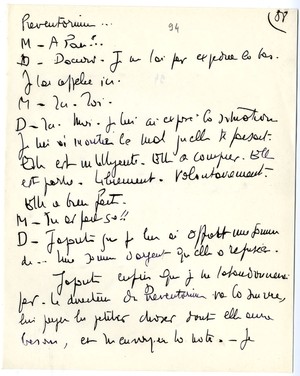 Preventorium...
94
88
M - A Paul?..
D - D'accord. Je ne lui ai pas exposé le cas.
Je l'ai appelée ici.
M - Tu. Toi.
D - Tu. Moi. Je lui ai exposé la situation
Je lui ai montré le mal qu'elle te faisait.
Elle est intelligente. Elle a compris. Elle
est partie. Librement. Volontairement.
Elle a bien fait.
M - Tu as fait ça!!
D - J'ajoute que je lui ai offert une somme
de... Une somme d'argent qu'elle a refusée.
J'ajoute enfin que je ne l'abandonnerai
pas. Le directeur du Preventorium va la suivre,
lui payer les petites choses dont elle aura
besoin, et m'envoyer la note. - Je